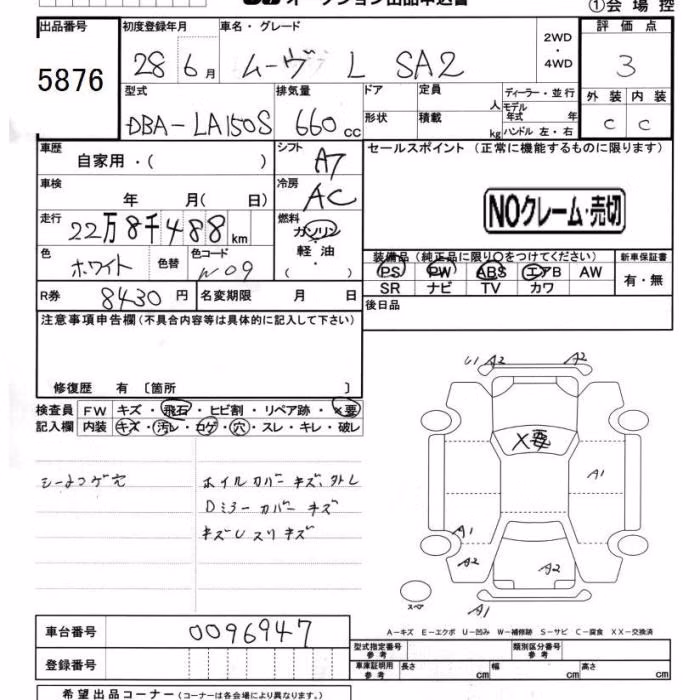 オークション出品申込書
①会場控
出品番号 初度登録年月 車名・グレード 2WD・4WD 評価点
5876 28 6月 ムーヴ L SA2 3
型式 排気量 ドア 定員 人 ディーラー・並行 外装 内装
DBA-LA150S 660cc 形状 積載 kg モデル年式 年 ハンドル 左・右 C C
車歴 自家用・( ) シフト A7 セールスポイント(正常に機能するものに限ります)
車検 年 月( 日) 冷房 AC
NOクレーム・売切
走行 22万8千488km 燃料 ガソリン・軽油・( )
色 ホワイト 色替 色コード W09
装備品(純正品に限り○をつけてください) 新車保証書
PS PW ABS エアB AW 有・無
SR ナビ TV カワ
R券 8430円 名変期限 月 日 後日品
注意事項申告欄(不具合内容等は具体的に記入して下さい)
修復歴 有 〔箇所 〕
検査員 FW キズ・飛石・ヒビ割・リペア跡・×要
記入欄 内装 キズ・汚レ・コゲ・穴・スレ・キレ・破レ
シートコゲ穴 ホイルカバー キズ、外レ
Dミラーカバー キズ
キズUスリキズ
U A2 A2
X要
A1
A1
A2 A2
スペア A1
A-キズ E-エクボ U-凹み W-補修跡 S-サビ C-腐食 XX-交換済
車台番号 0096947
型式指定番号 参考 類別区分番号 参考
登録番号 車庫証明用 参考 長さ cm 幅 cm 高さ cm
希望出品コーナー(コーナーは各会場により異なります。)